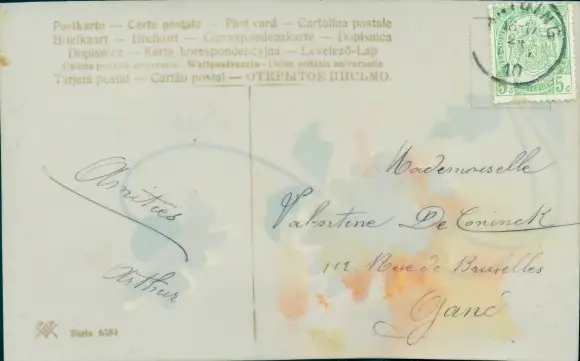 Postkarte — Carte postale — Post card — Cartolina postale
Briefkaart — Brefkort — Correspondenzkarte — Dopisnica
Dopisnice — Karta korespondencyjna — Levelező-Lap
Weltpostverein — Union postale universelle
Tarjeta postal — Cartão postal — ОТКРЫТОЕ ПИСЬМО.
ANTOING
10
5c 5c
Amitiés
Arthur
Mademoiselle
Valentine De Coninck
112 Rue de Bruxelles
Gand
Serie 6584